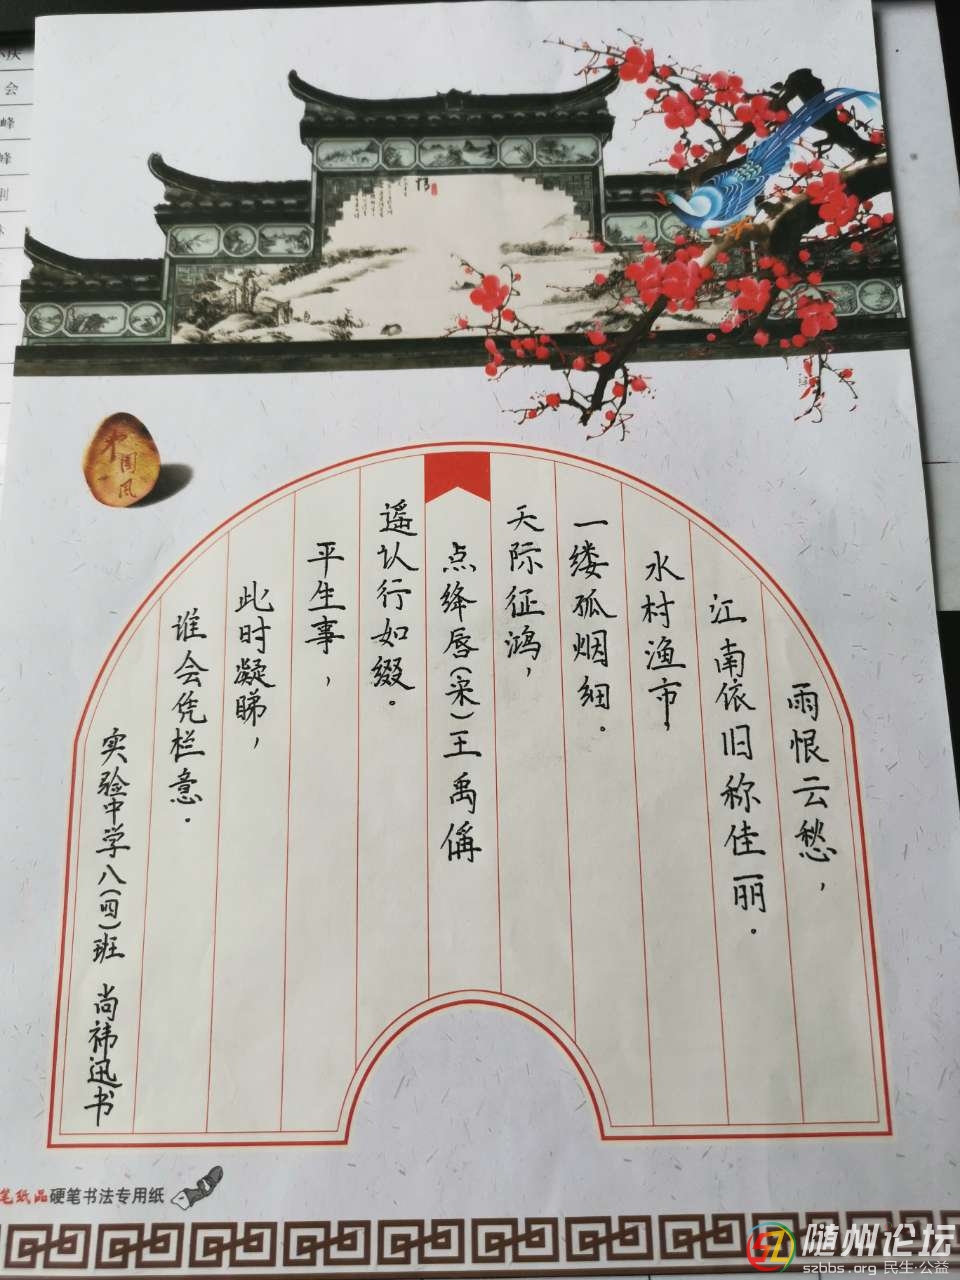 会
峰
峰
中国风
雨恨云愁，
江南依旧称佳丽．
水村渔市，
一缕孤烟细．
天际征鸿，
点绛唇(宋)王禹偁
遥认行如缀．
平生事，
此时凝睇，
谁会凭栏意．
实验中学八(四)班 尚祎迅书
笔纸品硬笔书法专用纸
随州论坛
szbbs.org 民生·公益